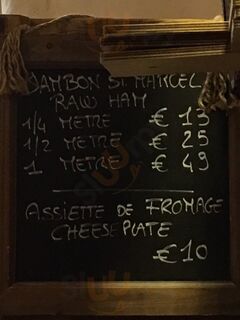 JAMBON ST MARCEL
RAW HAM
1/4 METRE € 13
1/2 METRE € 25
1 METRE € 49
ASSIETTE DE FROMAGE
CHEESE PLATE
€ 10